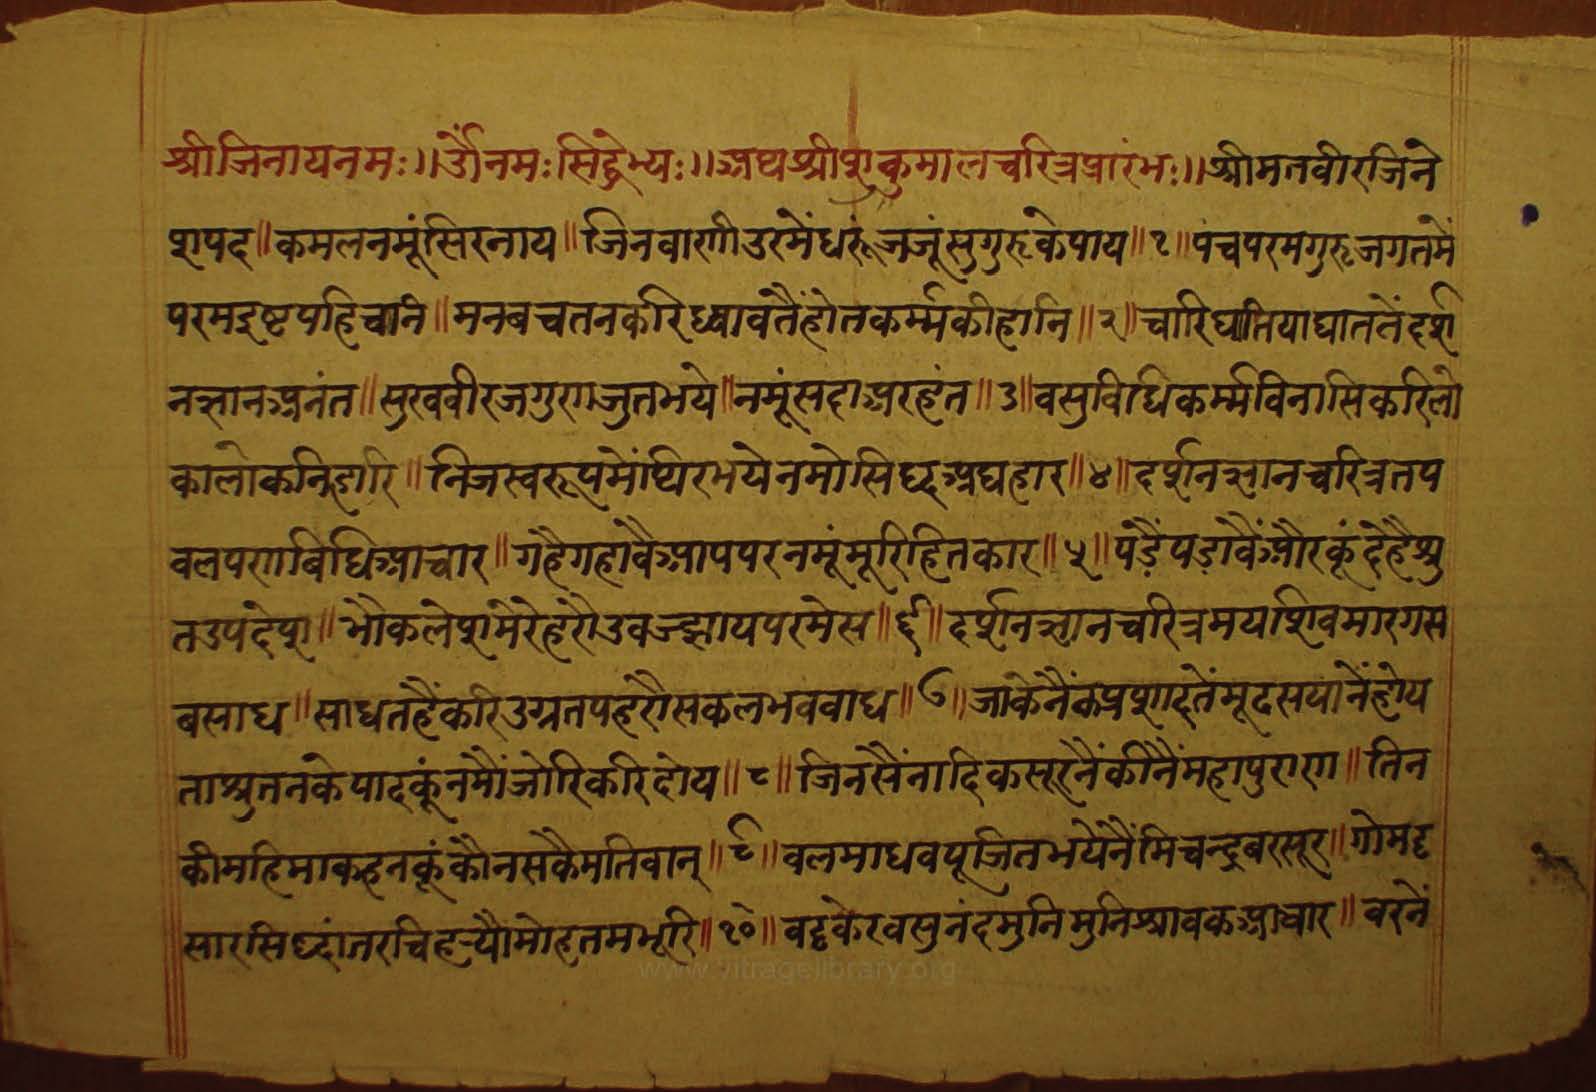 श्रीजिनायनमः॥ॐनमःसिद्धेभ्यः॥अथश्रीशुकुमालचरित्रप्रारंभः॥श्रीमतवीरजिने
शपद॥कमलनमूंसिरनाय॥जिनवाणीउरमेंधरूंजजूंसुगुरूकेपाय॥१॥पंचपरमगुरूजगतमें
परमइष्टपहिचांन॥मनबचतनकरिध्यावतैंहोतकर्म्मकीहानि॥२॥चारिघातियाघाततेंदर्श
नज्ञानअनंत॥सुखवीरजगुणजुतभये॥नमूंसदाअरहंत॥३॥वसुविधिकर्म्मविनासिकरिलो
कालोकनिहारि॥निजस्वरूपमेंथिरभयेनमोसिध्दअघहार॥४॥दर्शनज्ञानचरित्रतप
वलपणबिधिआचार॥गहैगहावैआपपरनमूंमूरिहितकार॥५॥पड़ैंपड़ावैंऔरकूंदेहैश्रु
तउपदेश॥भौकलेशमेरेहरौउवज्झायपरमेस॥६॥दर्शनज्ञानचरित्रमयशिवमारगस
बसाध॥साधतहैंकरिउग्रतपहरौसकलभववाध॥७॥जाकेनैंकप्रशादतेंमूढसयानेंहोय
ताश्रुतनकेपादकूंनमौंजोरिकरिदोय॥८॥जिनसैंनादिकसूरनैंकीनैंमहापुराण॥तिन
कीमहिमाकहनकूंकौनसकैमतिवान्॥९॥वलमाधवपूजितभयेनैंमिचन्द्रबरसूर॥गोमट्ट
सारसिध्दांतरचिहर्‍यौमोहतमभूरि॥१०॥वट्टकेरवसुनंदमुनिमुनिश्रावकआचार॥वरनैं
www.vitragelibrary.org